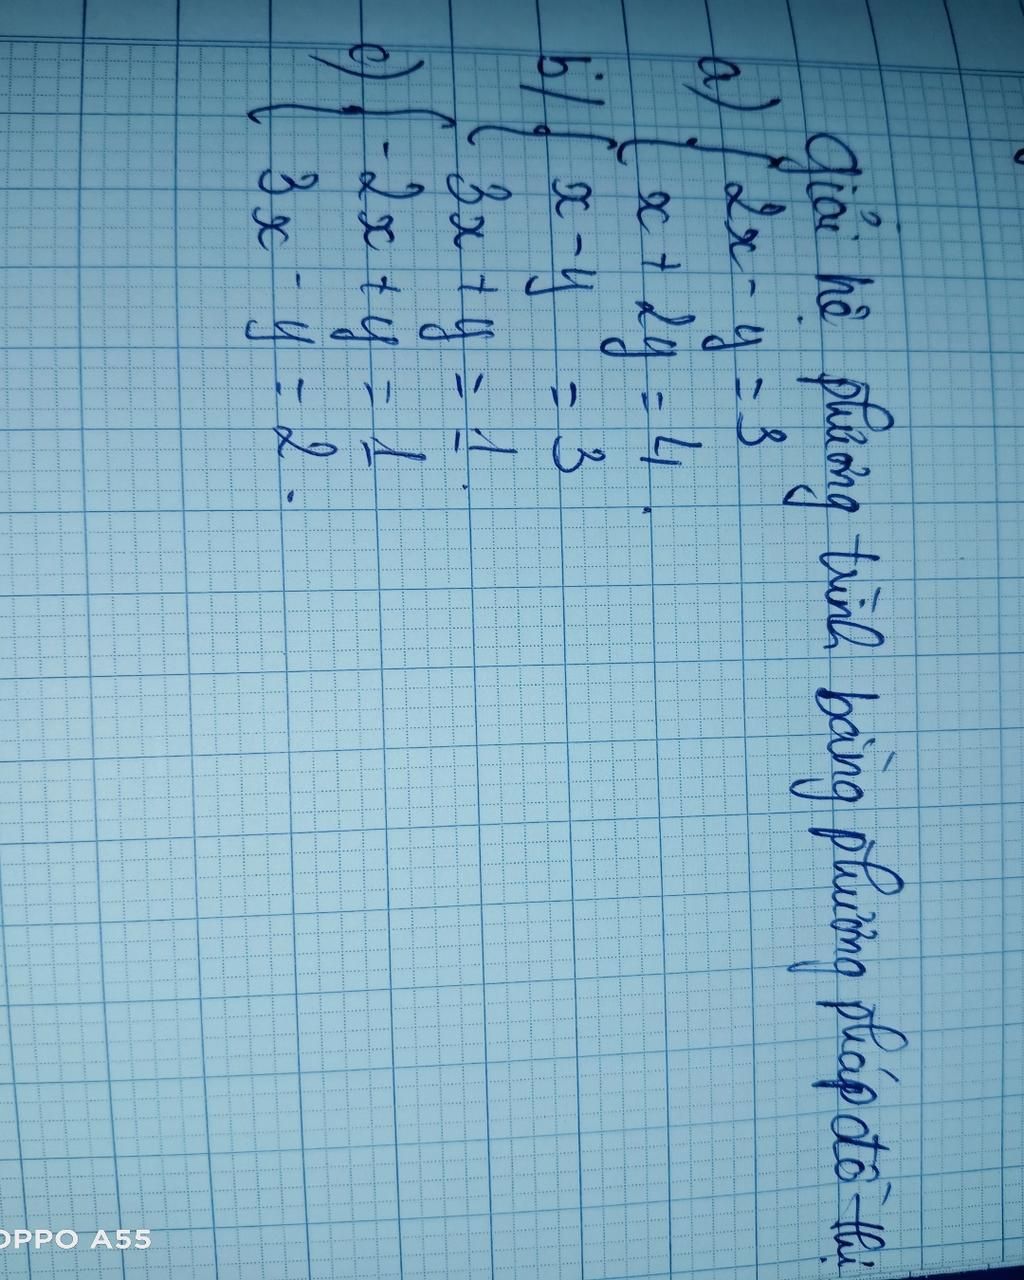 Giải hệ phương trình bằng phương pháp đồ thị
a) { 2x - y = 3
x + 2y = 4.
b) { x - y = 3
3x + y = 1.
c) { -2x + y = 1
3x - y = 2.
OPPO A55